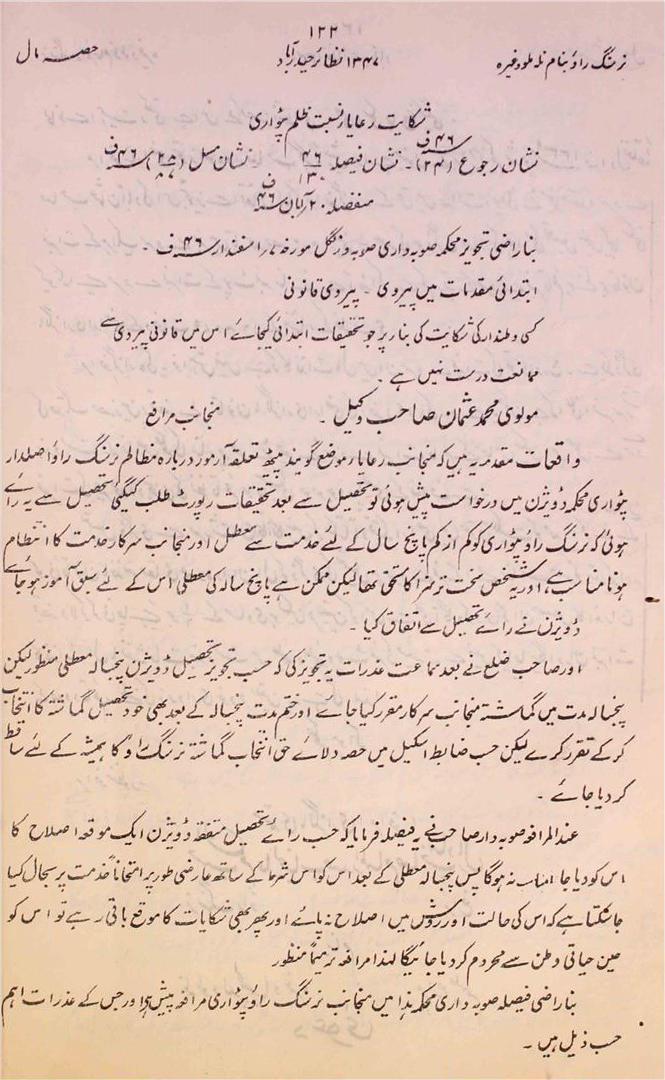 ۱۲۲
نرسنگ راؤ بنام نہ ملو وغیرہ ۱۳۴۷ نظائر حیدرآباد حصہ مال
شکایت رعایا نسبت ظلم پٹواری
نشان رجوع (۲۴) ۴۶ف نشان فیصلہ نشان مسل ۴۶ف
منفصلہ ۲۰ آبان ۴۶ف
بناراضی تجویز محکمہ صوبہ داری صوبہ ورنگل مورخہ ۷ اسفندار ۴۶ف ۔
ابتدائی مقدمات میں پیروی ۔ پیروی قانونی
کسی وطندار کی شکایت کی بنا پر جو تحقیقات ابتدائی کیجائے اس میں قانونی پیروی سے
ممانعت درست نہیں ہے ۔
مولوی محمد عثمان صاحب وکیل ۔ منجانب مرافع
واقعات مقدمہ یہ ہیں کہ منجانب رعایا موضع گوبند پیٹھ تعلقہ آرمور دربارہ مظالم نرسنگ راؤ اصلدار
پٹواری محکمہ ڈویژن میں درخواست پیش ہوئی تو تحصیل سے بعد تحقیقات رپورٹ طلب کیگئی تحصیل سے یہ رائے
ہوئی کہ نرسنگ راؤ پٹواری کو کم از کم پانچ سال کے لئے خدمت سے معطل اور منجانب سرکار خدمت کا انتظام
ہونا مناسب ہے، اور یہ شخص سخت تر سزا کا مستحق تھا لیکن ممکن ہے پانچ سالہ کی معطلی اس کے لئے سبق آموز ہو جائے
ڈویژن نے رائے تحصیل سے اتفاق کیا ۔
اور صاحب ضلع نے بعد سماعت عذرات یہ تجویز کی کہ حسب تجویز تحصیل ڈویژن پنجسالہ معطلی منظور لیکن
پنجسالہ مدت میں گماشتہ منجانب سرکار مقرر کیا جائے اور ختم مدت پنجسالہ کے بعد بھی خود تحصیل گماشتہ کا انتخاب
کر کے تقرر کرے لیکن حسب ضابط اسکیل میں حصہ دلائے حق انتخاب گماشتہ نرسنگ راؤ کا ہمیشہ کے لئے ساقط
کر دیا جائے ۔
عند المرافعہ صوبہ دار صاحب نے یہ فیصلہ فرمایا کہ حسب رائے تحصیل متفقہ ڈویژن ایک موقعہ اصلاح کا
اس کو دیا جانا مناسب نہ ہوگا پس پنجسالہ معطلی کے بعد اس کو اس شرط کے ساتھ عارضی طور پر امتحاناً خدمت پر بحال کیا
جاسکتا ہے کہ اس کی حالت اور روش میں اصلاح نہ پائے اور پھر بھی شکایات کا موقع باقی رہے تو اس کو
حین حیاتی وطن سے محروم کر دیا جائیگا لہذا مرافعہ ترمیماً منظور
بناراضی فیصلہ صوبہ داری محکمہ ہذا میں منجانب نرسنگ راؤ پٹواری مرافعہ پیش ہوا اور جس کے عذرات اہم
حسب ذیل ہیں ۔